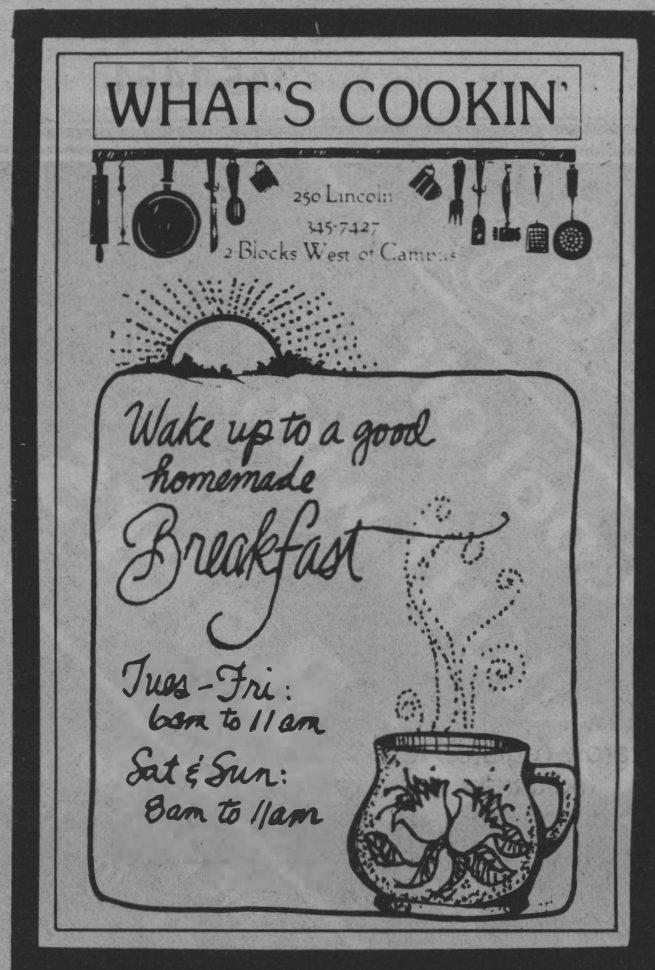 WHAT'S COOKIN'
250 Lincoln
345-7427
2 Blocks West of Campus
Wake up to a good
homemade
Breakfast
Tues - Fri:
6am to 11am
Sat & Sun:
8am to 11am